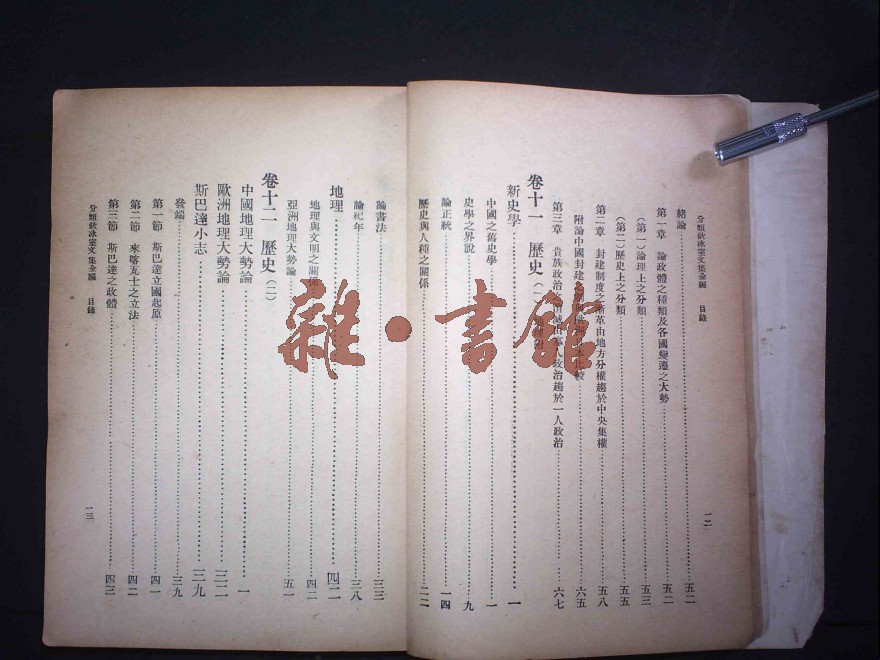 分類飲冰室文集全編　目錄
緒論……五二
第一章　論政體之種類及各國變遷之大勢……五二
（第一）論理上之分類……五三
（第二）歷史上之分類……五五
第二章　封建制度之漸革由地方分權趨於中央集權……五八
附論中國封建之制與　比較……六五
第三章　貴族政治之　政治趨於一人政治……六七
卷十一　歷史（一）
新史學……一
中國之舊史學……一
史學之界說……九
論正統……一四
歷史與人種之關係……二二
一二
論書法……三三
論紀年……三八
地理……四二
地理與文明之關係……四二
亞洲地理大勢論……五一
卷十二　歷史（二）
中國地理大勢論……一
歐洲地理大勢論……三二
斯巴達小志……三九
發端……三九
第一節　斯巴達立國起原……四一
第二節　來喀瓦士之立法……四二
第三節　斯巴達之政體……四三
分類飲冰室文集全編　目錄
一三
雜·書館